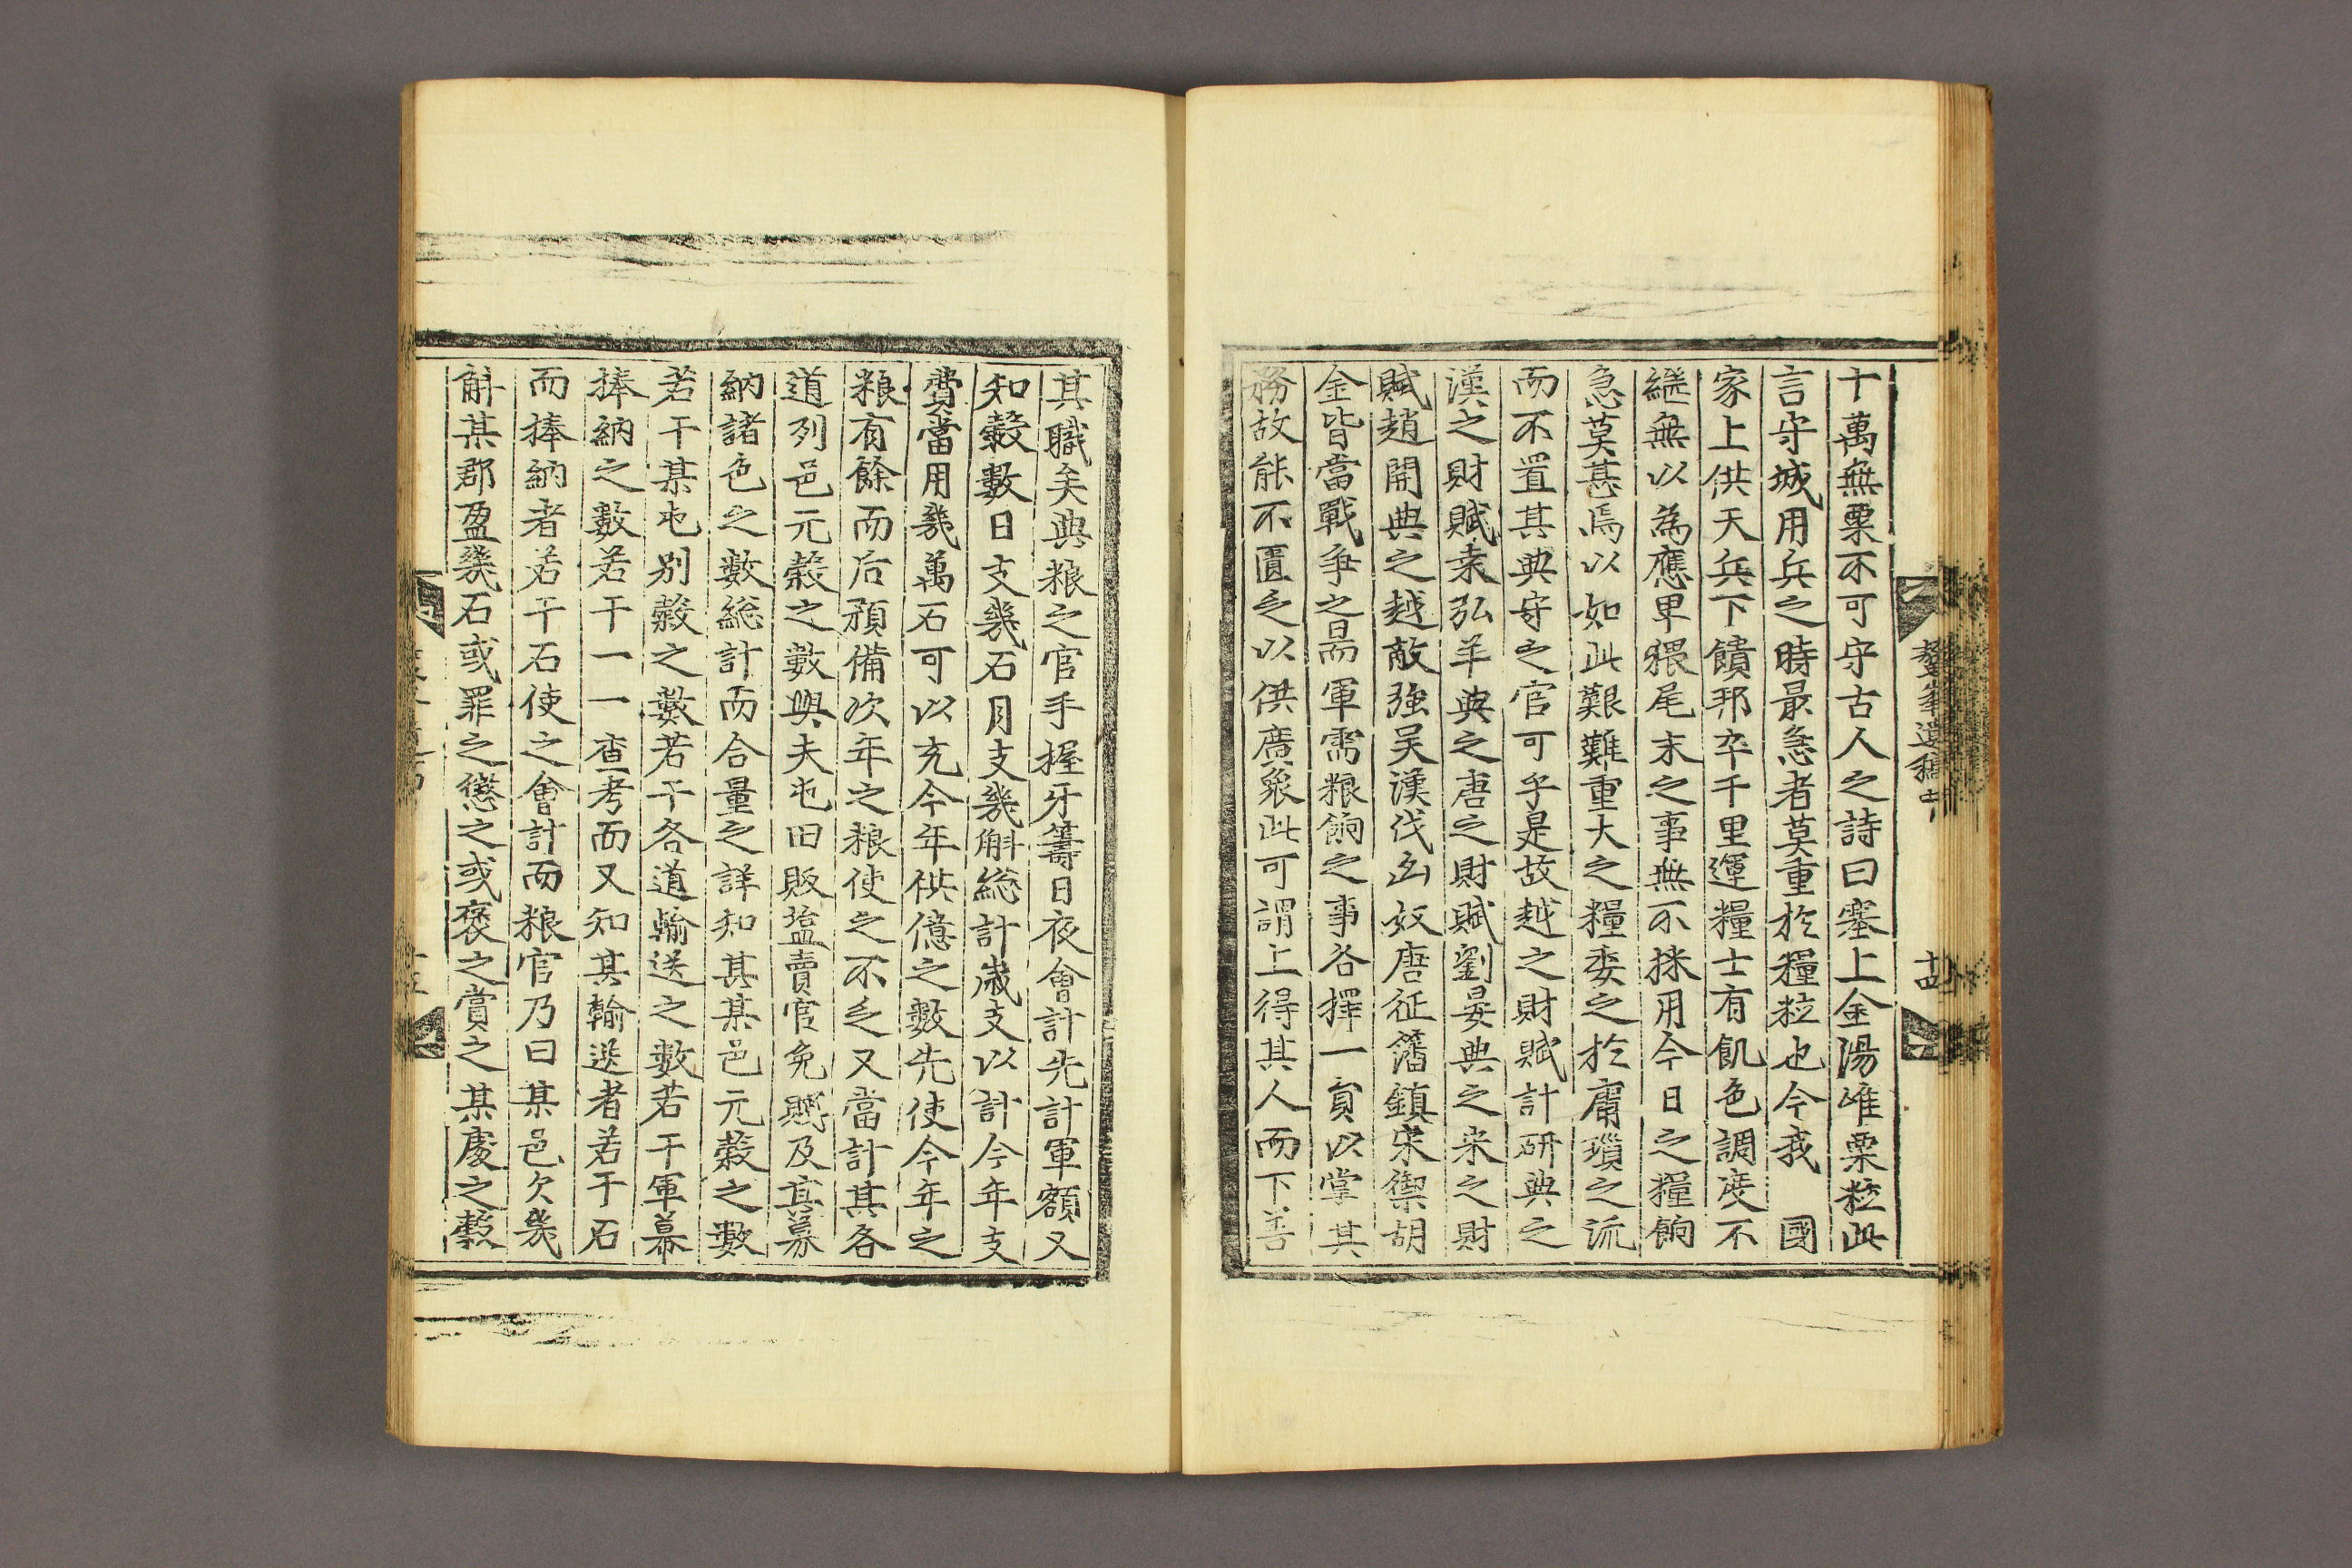 十萬無粟不可守古人之詩曰塞上金湯唯粟粒此
言守城用兵之時最急者莫重於糧粒也今我 國
家上供天兵下饋邦卒千里運糧士有飢色調度不
繼無以為應畢猥尾末之事無不採用今日之糧餉
急莫甚焉以如此艱難重大之糧委之於庸瑣之流
而不置其典守之官可乎是故越之財賦計研典之
漢之財賦桒弘羊典之唐之財賦劉晏典之宋之財
賦趙開典之越敵強吴漢伐匈奴唐征籓鎮宋禦胡
金皆當戰爭之昜軍需粮餉之事各擇一負以掌其
務故能不匱乏以供廣衆此可謂上得其人而下善
鰲峯遺稿
十四
其職矣典粮之官手握牙籌日夜會計先計軍額又
知穀數日支幾石月支幾斛総計歲支以計今年支
費當用幾萬石可以充今年供億之數先使今年之
粮有餘而后預備次年之粮使之不乏又當計其各
道列邑元穀之數與夫屯田販塩賣官免賤及其募
納諸色之數総計而合量之詳知其某邑元穀之數
若干某屯别穀之數若干各道輸送之數若干軍幕
捧納之數若干一一查考而又知其輸送者若干石
而捧納者若干石使之會計而粮官乃曰某邑欠幾
斛某郡盈幾石或罪之懲之或褒之賞之某處之穀